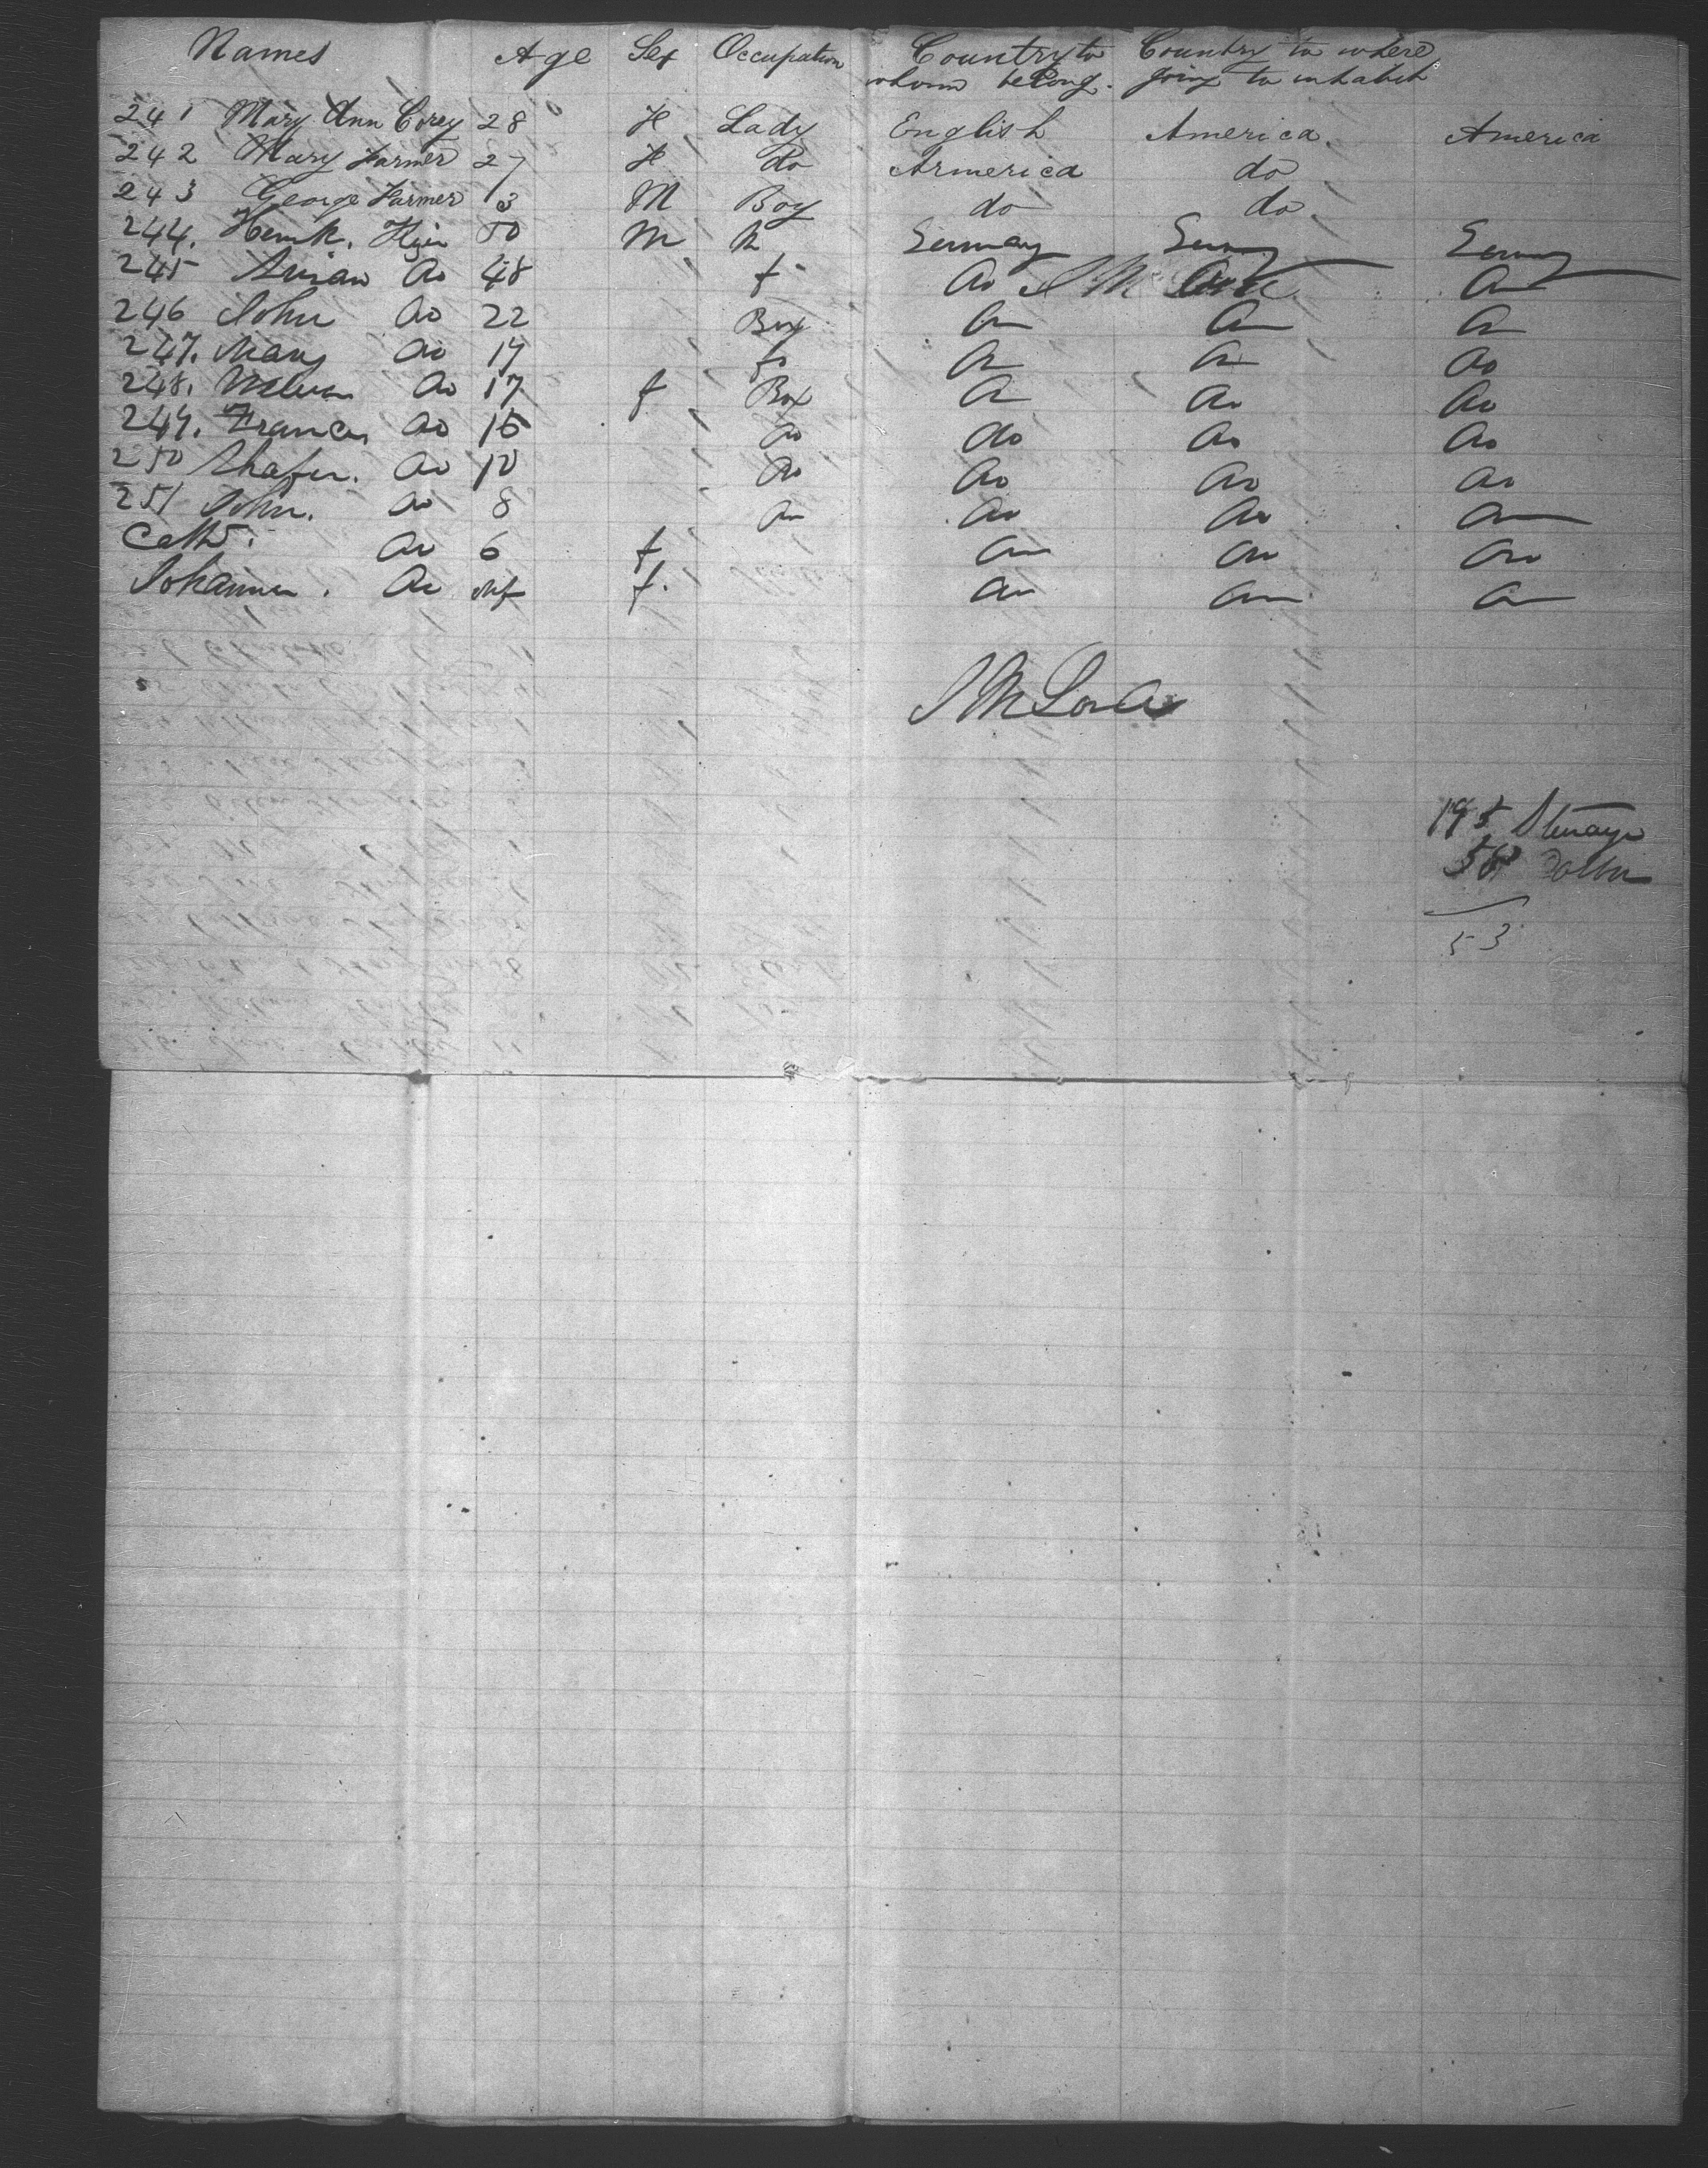 Names Age Sex Occupation Country to Country to where
whom belong. going to inhabit
241 Mary Ann Corey 28 F Lady English America America
242 Mary Farmer 27 F Do Armerica do
243 George Farmer 3 M Boy do do
244. 50 M Germany Germany Germany
245 do 48 f do do
246 John do 22 Boy do do do
247. Mary do 19 do do do
248. do 17 f Boy do do do
249. Francis do 15 do do do do
250 do 10 do do do do
251 John. do 8 do do do do
Cath. do 6 f do do do
do inf f. do do do
195
53